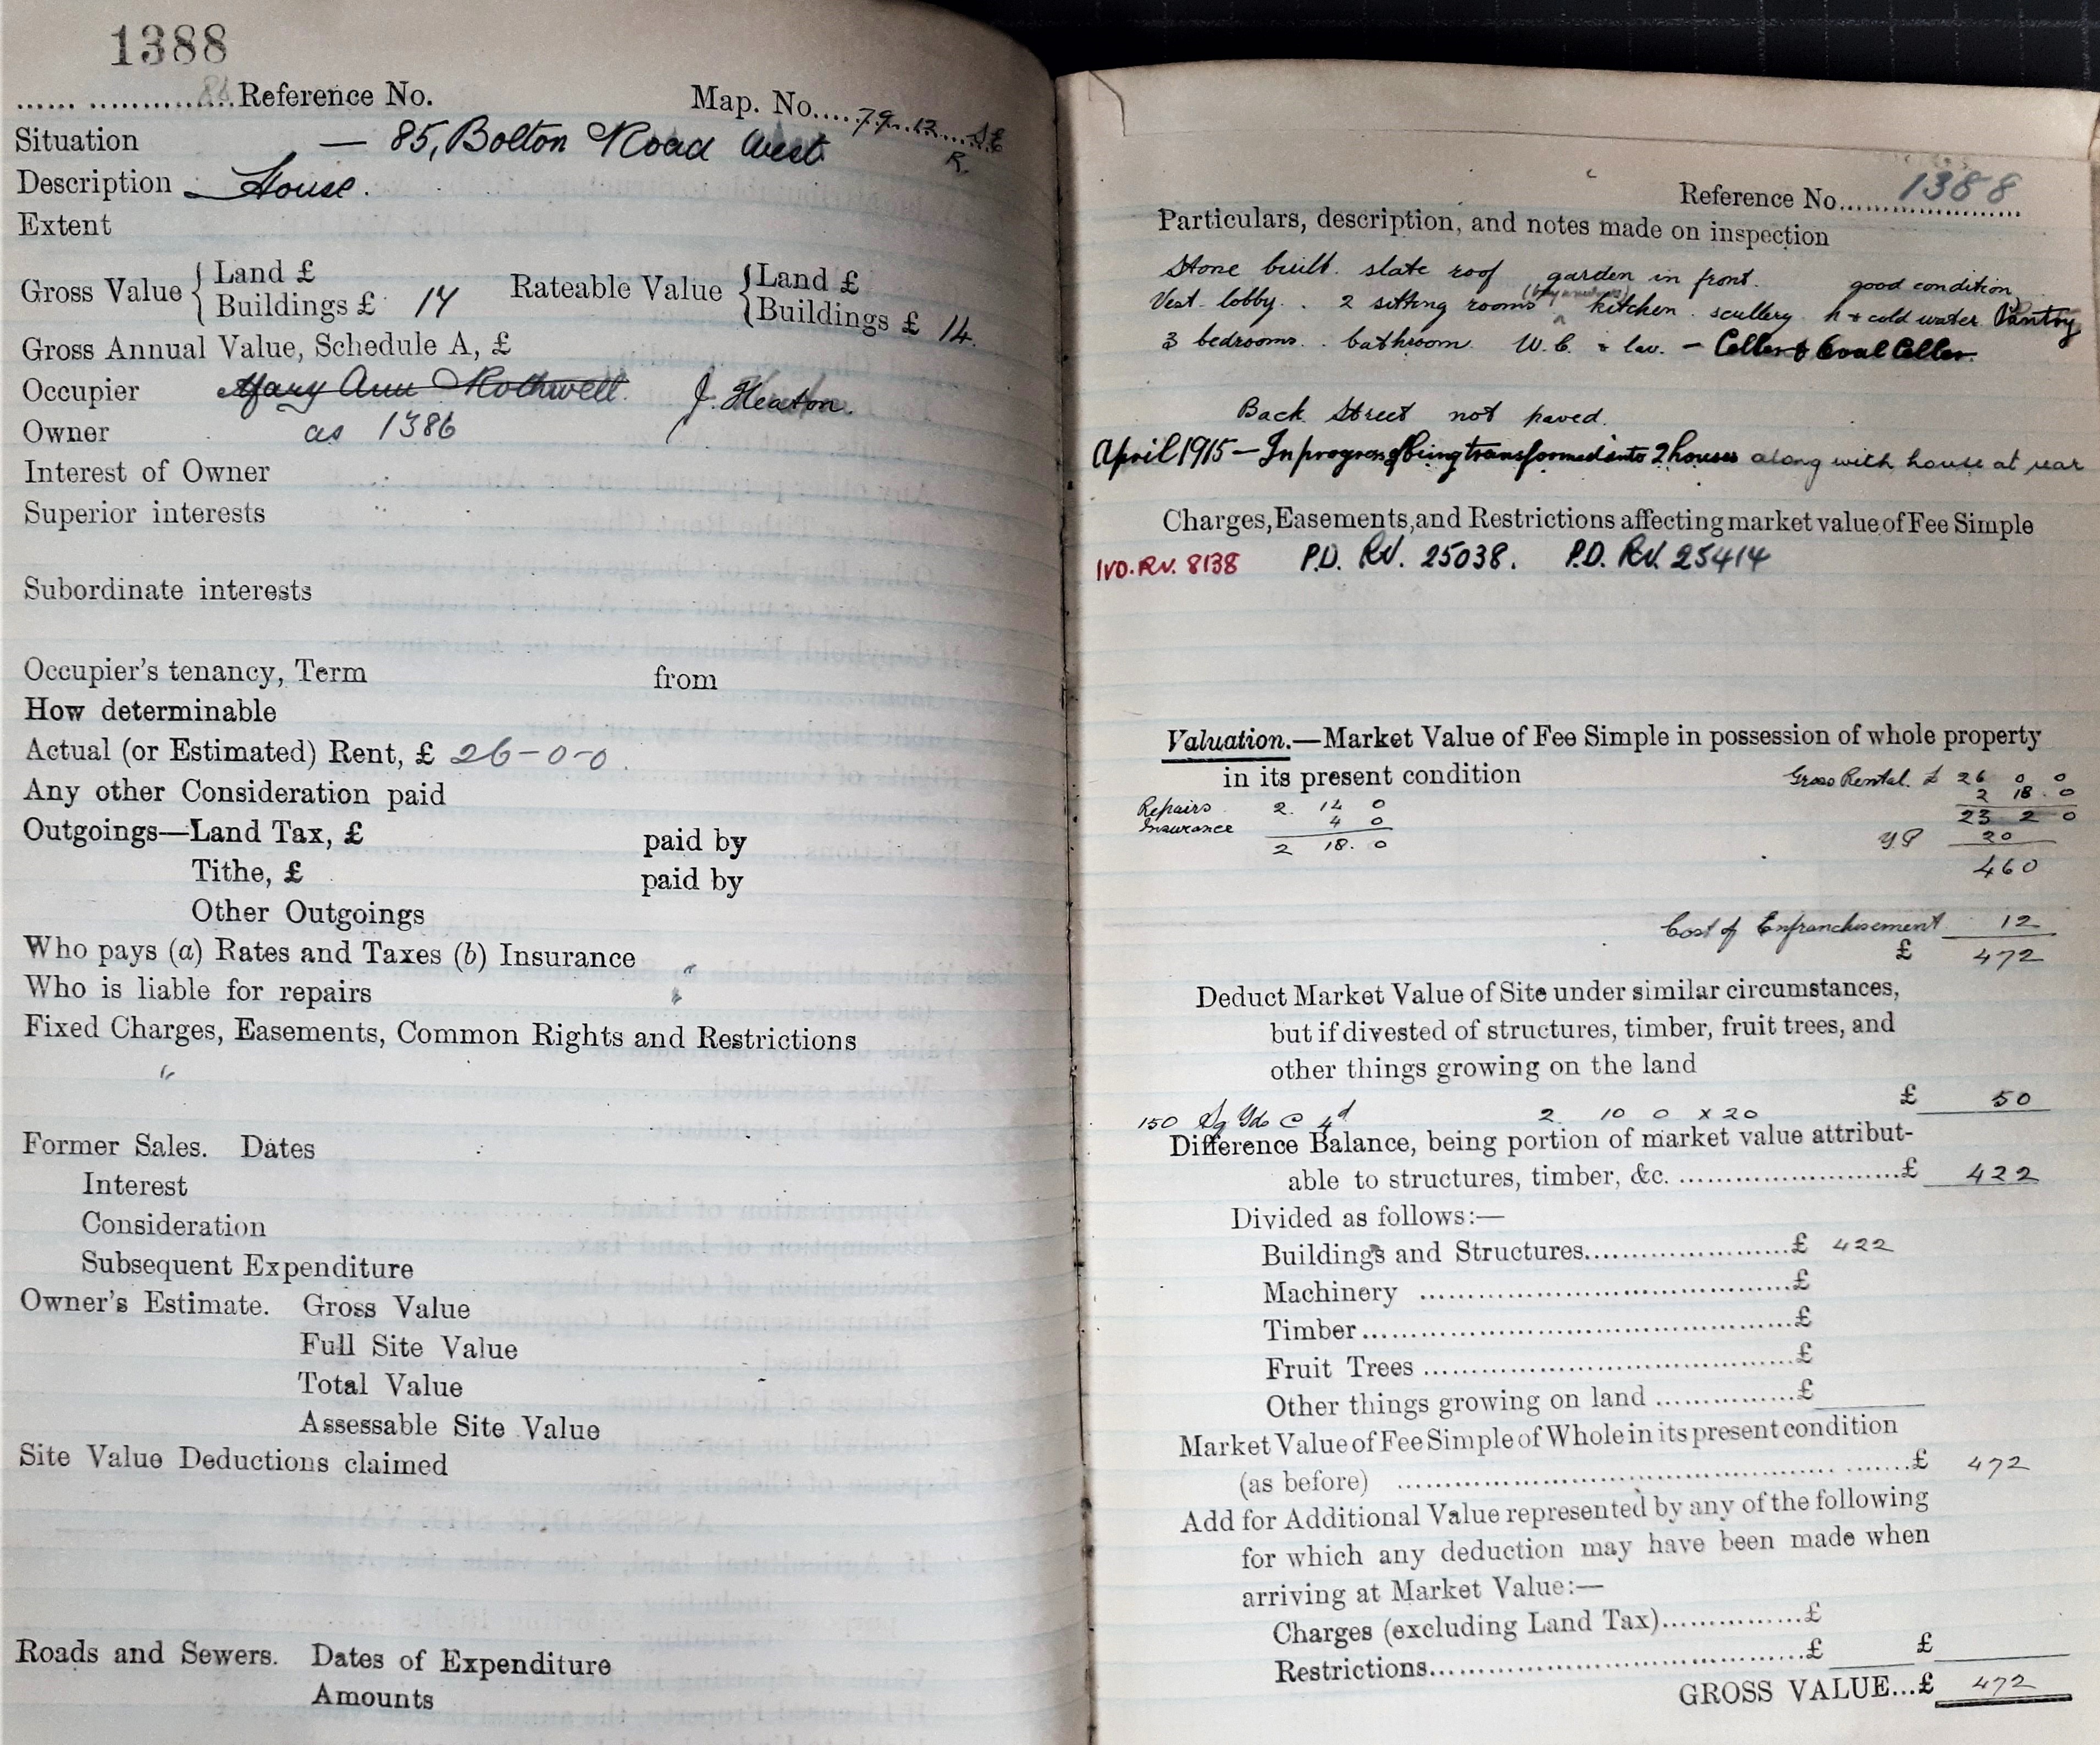 1388
Reference No. Map. No. 79.12 SE
R.
Situation — 85, Bolton Road West
Description — House.
Extent
Gross Value { Land £ Rateable Value { Land £
Buildings £ 17 Buildings £ 14.
Gross Annual Value, Schedule A, £
Occupier Mary Ann Rothwell. J. Heaton.
Owner as 1386
Interest of Owner
Superior interests
Subordinate interests
Occupier's tenancy, Term from
How determinable
Actual (or Estimated) Rent, £ 26-0-0.
Any other Consideration paid
Outgoings—Land Tax, £ paid by
Tithe, £ paid by
Other Outgoings
Who pays (a) Rates and Taxes (b) Insurance
Who is liable for repairs
Fixed Charges, Easements, Common Rights and Restrictions
Former Sales. Dates
Interest
Consideration
Subsequent Expenditure
Owner's Estimate. Gross Value
Full Site Value
Total Value
Assessable Site Value
Site Value Deductions claimed
Roads and Sewers. Dates of Expenditure
Amounts
Reference No. 1388
Particulars, description, and notes made on inspection
Stone built. slate roof garden in front. good condition
Vest. lobby. 2 sitting rooms kitchen. scullery. h & cold water. Pantry
3 bedrooms. bathroom. W.C. & lav. — Cellar & Coal Cellar.
Back Street not paved.
April 1915 — In progress of being transformed into 2 houses along with house at rear
Charges, Easements, and Restrictions affecting market value of Fee Simple
IVD. RV. 8138 P.D. RV. 25038. P.D. RV. 25414
Valuation.—Market Value of Fee Simple in possession of whole property
in its present condition Gross Rental. £ 26 0 0
Repairs 2. 14 0 2 18. 0
Insurance 4 0 23 2 0
2 18. 0 Y P 20
460
Cost of Enfranchisement 12
£ 472
Deduct Market Value of Site under similar circumstances,
but if divested of structures, timber, fruit trees, and
other things growing on the land
£ 50
150 Sq Yds @ 4d 2 10 0 x 20
Difference Balance, being portion of market value attribut-
able to structures, timber, &c. £ 422
Divided as follows:—
Buildings and Structures £ 422
Machinery £
Timber £
Fruit Trees £
Other things growing on land £
Market Value of Fee Simple of Whole in its present condition
(as before) £ 472
Add for Additional Value represented by any of the following
for which any deduction may have been made when
arriving at Market Value:—
Charges (excluding Land Tax) £
Restrictions £ £
GROSS VALUE...£ 472